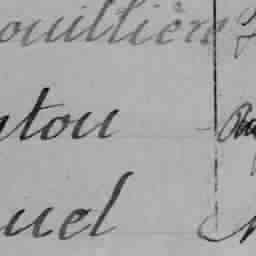 ouillière
atou
uel